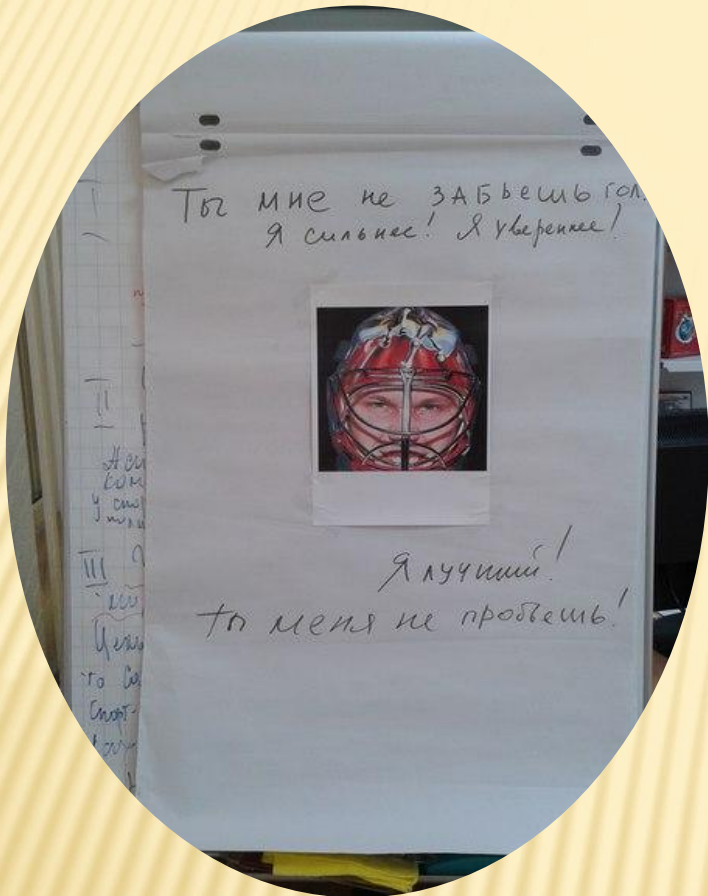 Ты мне не ЗАБЬЕШЬ гол.
Я сильнее! Я увереннее!
Я лучший!
Ты меня не пробьешь!
II
III
то
Спорт-